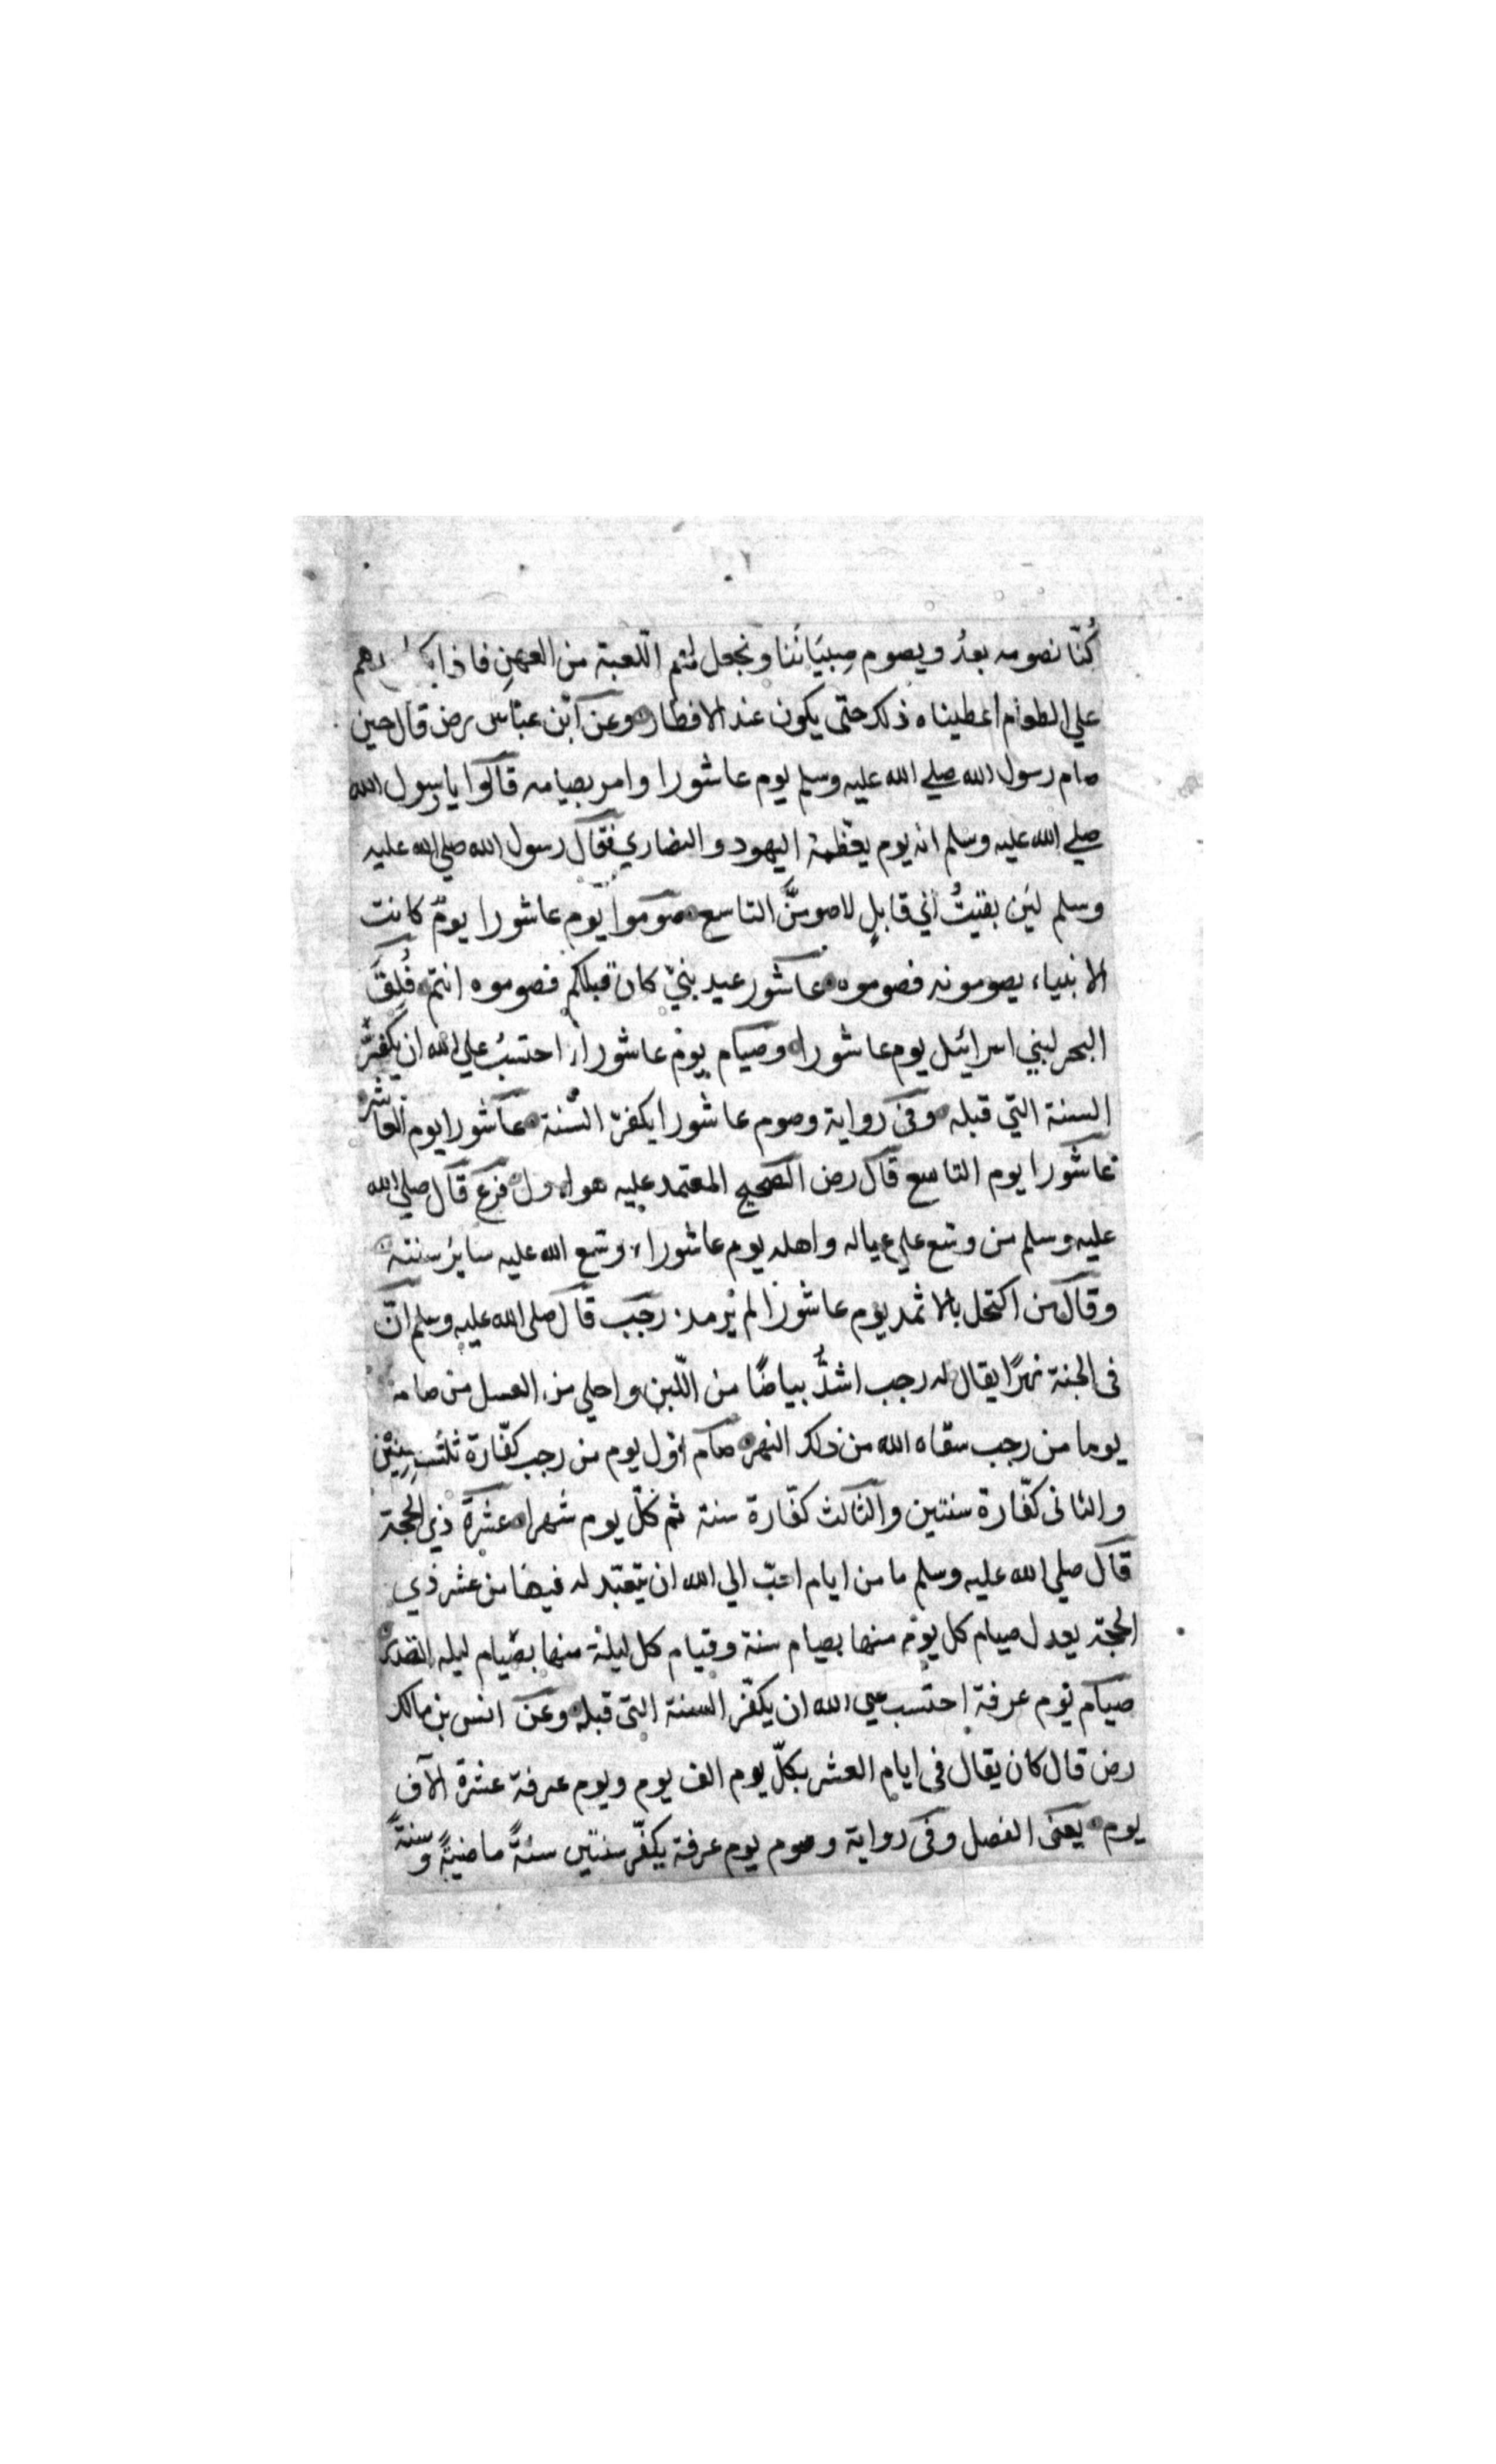 كُنّا نصومه بعدُ ويصوم صِبيَانُنا ونجعل لهم اللّعبة من العهنِ فاذا
علي الطعام اعطيناه ذلك حتّى يكون عند الافطار وعن ابْن عبّاس رض قال حين
صام رسول الله صلي الله عليه وسلم يوم عاشورا وامر بصيامه قالوا يا رسول الله
صلي الله عليه وسلم انه يوم يعظّمه اليهود والنصاري فقال رسول الله صلي الله عليه
وسلم لئن بقيتُ الي قابلٍ لاصومنَّ التاسع صوموا يوم عاشورا يومٌ كانت
الانبياء يصومونه فصوموه عاشور عيد نبيّ كان قبلكم فصوموه انتم فُلِقَ
البحر لبني اسرائيل يوم عاشورا وصيام يوم عاشورا احتسبُ علي الله ان يكفّر
السنة التي قبله وفى رواية وصوم عاشورا يكفّر السّنة عاشورا يوم العاشر
عاشورا يوم التاسع قال رض الصحيح المعتمد عليه هو الاول فرع قال صلي الله
عليه وسلم من وسّع علي عياله واهله يوم عاشوراء وسّع الله عليه سائر سنته
وقال من اكتحل بالاثمد يوم عاشورا لم يرمد رجب قال صلى الله عليه وسلم انّ
فى الجنة نهرًا يقال له رجب اشدُّ بياضًا من اللّبن واحلي من العسل من صامه
يوما من رجب سقاه الله من ذلك النهر صام اوّل يوم من رجب كفّارة ثلث سِنِيْن
والثانى كفّارة سنتين والثالث كفّارة سنة ثم كلّ يوم شهرا عشرة ذي الحجة
قال صلي الله عليه وسلم ما من ايام احبّ الي الله ان يتعبّد له فيها من عشر ذي
الحجة يعدل صيام كل يوم منها بصيام سنة وقيام كل ليلة منها بصيام ليله القدر
صيام يوم عرفة احتسب علي الله ان يكفّر السنة التى قبله وعن انس بن مالك
رض قال كان يقال فى ايام العشر بكلّ يوم الف يوم ويوم عرفة عشرة الآف
يوم يعنى الفضل وفى رواية وصوم يوم عرفة يكفّر سنتين سنةً ماضيةً وسنةً